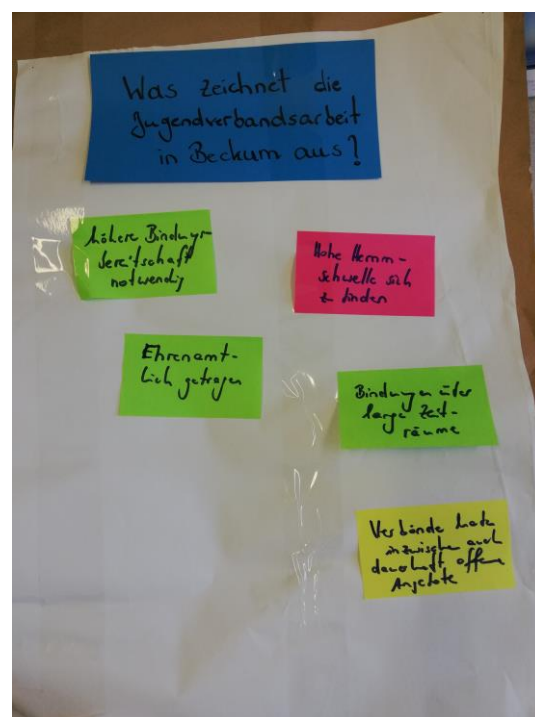 Was zeichnet die
Jugendverbandsarbeit
in Beckum aus?
höhere Bindungs-
bereitschaft
notwendig
Hohe Hemm-
schwelle sich
zu binden
Ehrenamt-
lich getragen
Bindungen über
lange Zeit-
räume
Verbände haben
inzwischen auch
dauerhaft offene
Angebote